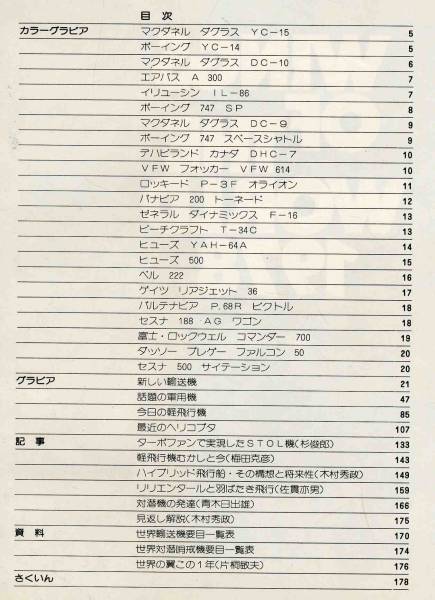 目 次
カラーグラビア マクダネル ダグラス YC-15 5
ボーイング YC-14 5
マクダネル ダグラス DC-10 6
エアバス A 300 7
イリューシン IL-86 7
ボーイング 747 SP 8
マクダネル ダグラス DC-9 9
ボーイング 747 スペースシャトル 9
デハビランド カナダ DHC-7 10
VFW フォッカー VFW 614 10
ロッキード P-3F オライオン 11
パナビア 200 トーネード 12
ゼネラル ダイナミックス F-16 13
ビーチクラフト T-34C 13
ヒューズ YAH-64A 14
ヒューズ 500 15
ベル 222 16
ゲイツ リアジェット 36 17
パルテナビア P.68R ビクトル 18
セスナ 188 AG ワゴン 18
富士・ロックウェル コマンダー 700 19
ダッソー ブレゲー ファルコン 50 20
セスナ 500 サイテーション 20
グラビア 新しい輸送機 21
話題の軍用機 47
今日の軽飛行機 85
最近のヘリコプタ 107
記 事 ターボファンで実現したSTOL機(杉俊郎) 133
軽飛行機むかしと今(梅田克彦) 143
ハイブリッド飛行船・その構想と将来性(木村秀政) 149
リリエンタールと羽ばたき飛行(佐貫亦男) 159
対潜機の発達(青木日出雄) 166
見返し解説(木村秀政) 175
資 料 世界輸送機要目一覧表 170
世界対潜哨戒機要目一覧表 174
世界の翼この1年(片桐敏夫) 176
さくいん 178